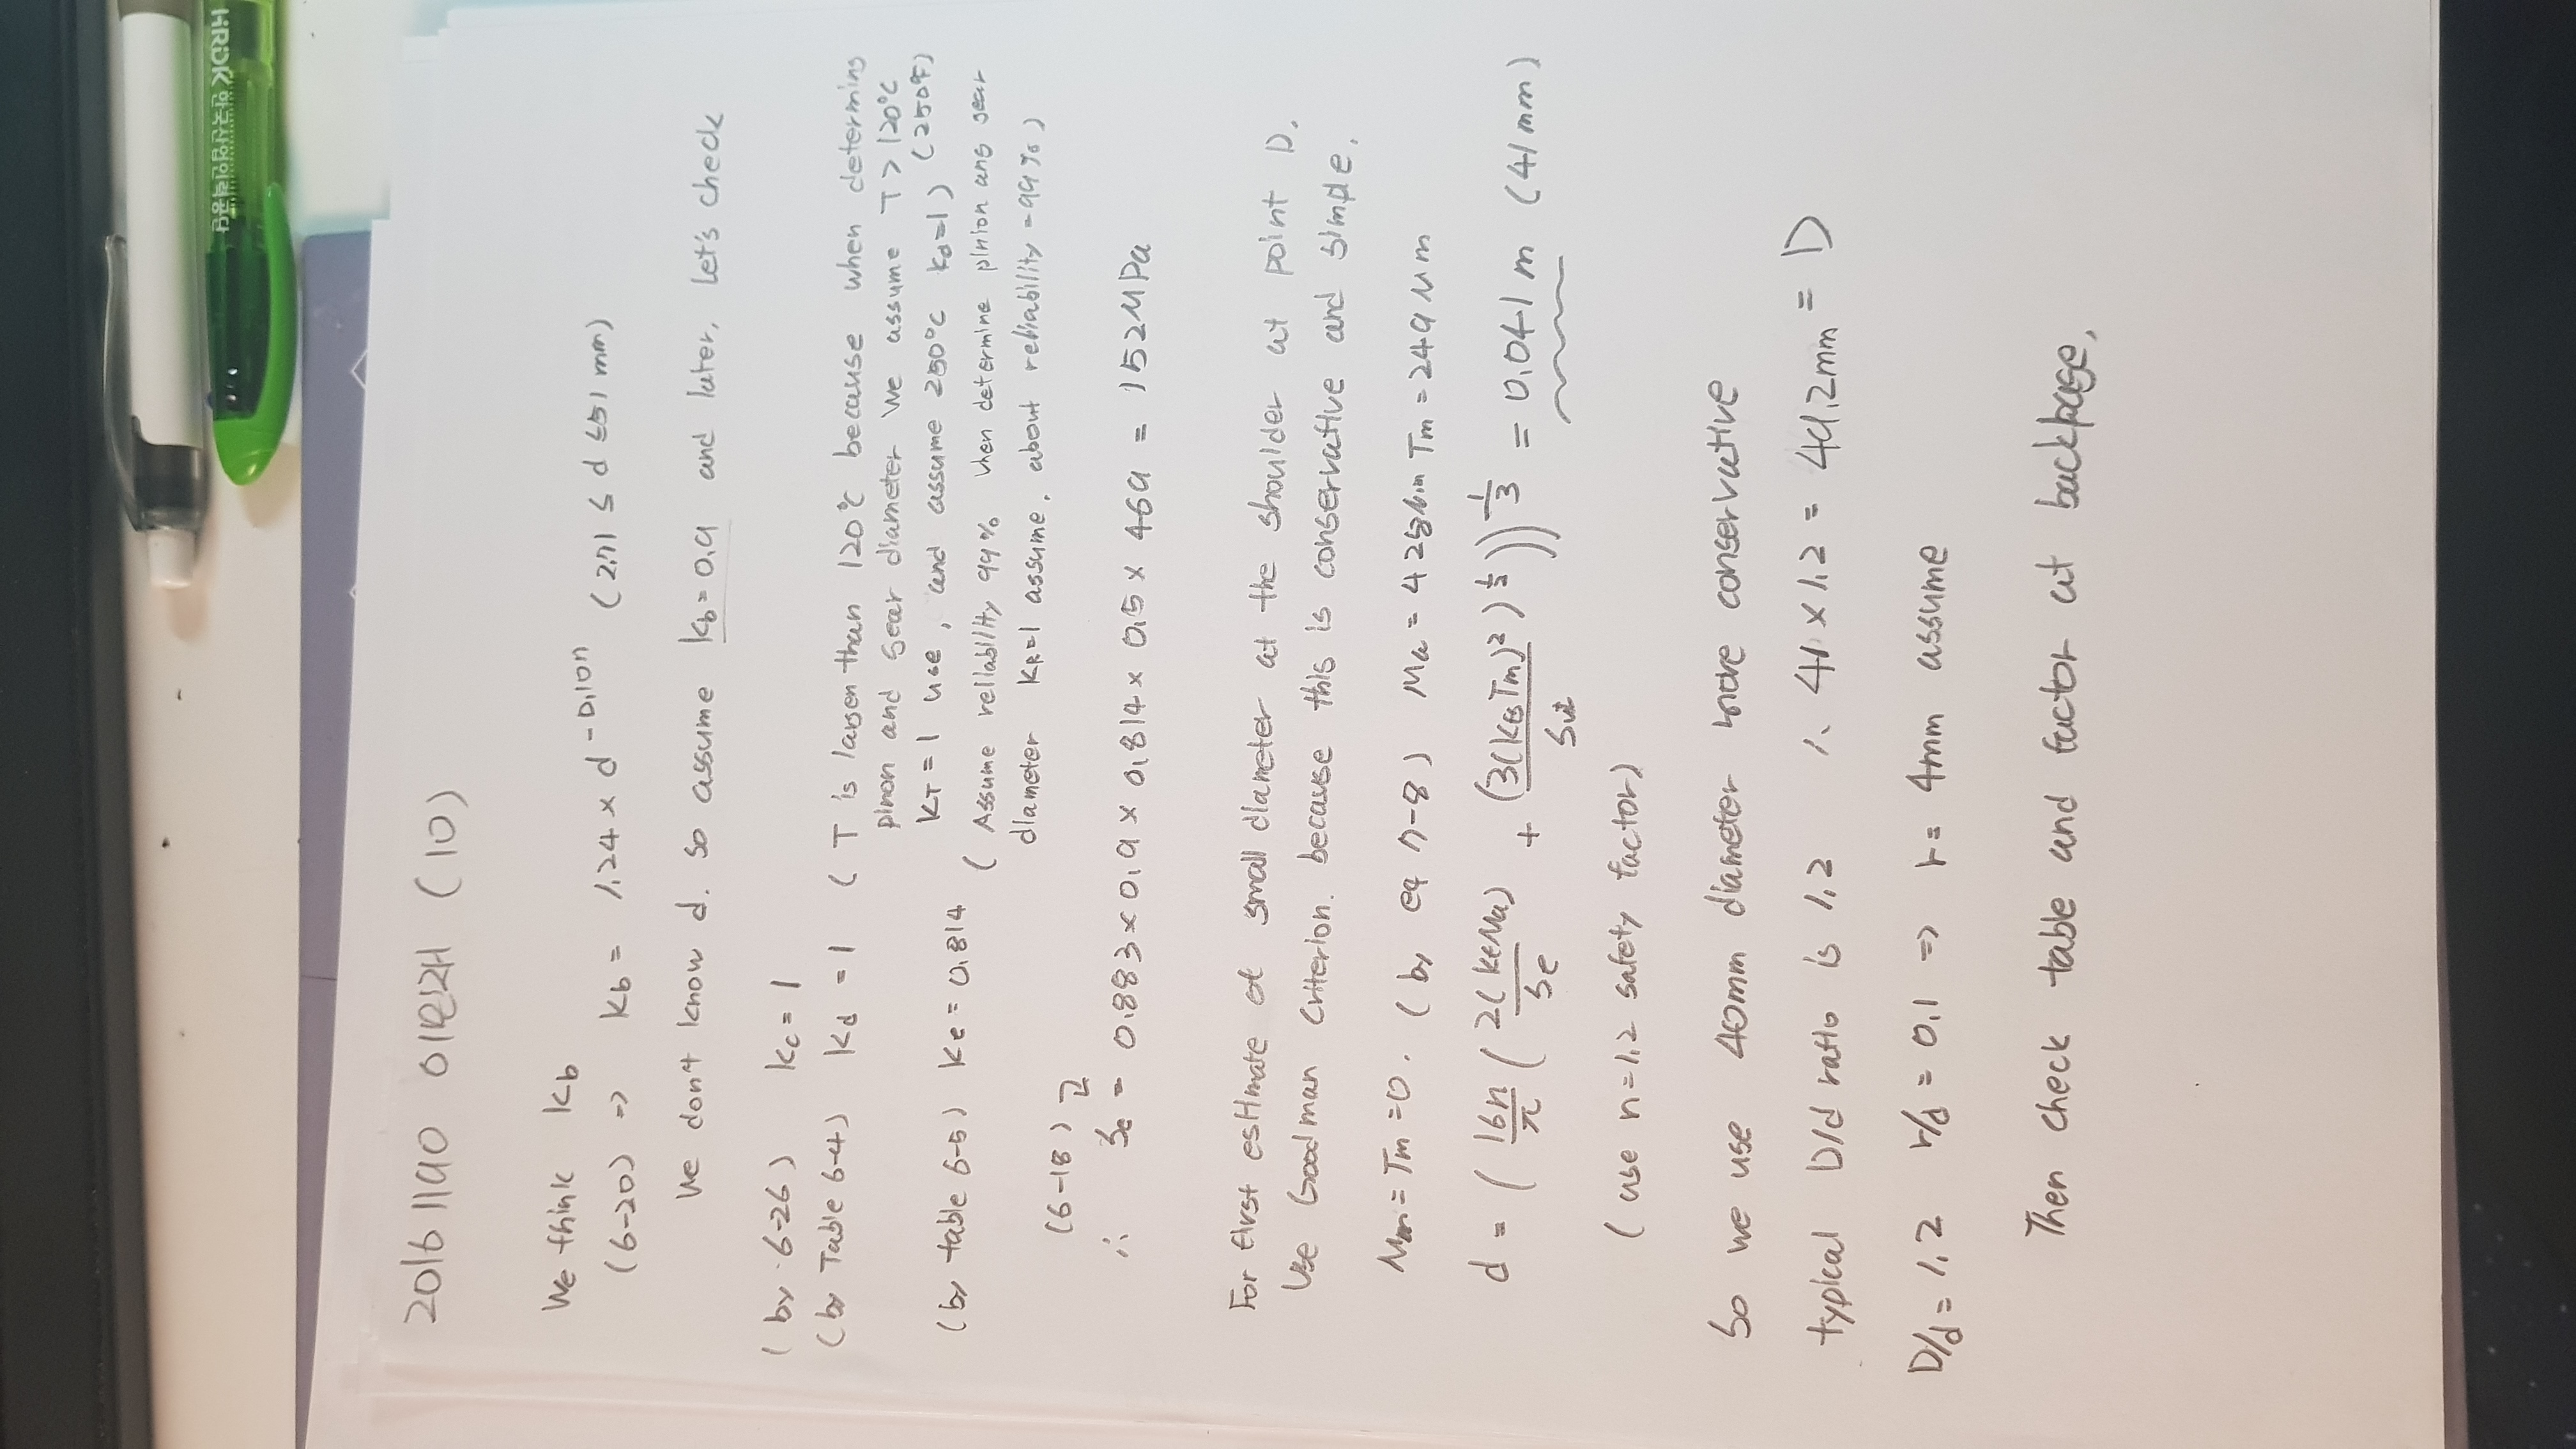 HRDK 한국산업인력공단
20161190 이민재 (10)
We think kb
(6-20) => kb = 1.24 × d^-0.107 (2.71 ≤ d ≤ 51 mm)
We don't know d. so assume kb=0.9 and later, Let's check
(by 6-26) kc = 1
(by Table 6-4) kd = 1 ( T is larger than 120°C because when determing
pinon and gear diameter We assume T > 120°C
KT = 1 use, and assume 250°C kd=1) (250°F)
(by table 6-5) ke = 0.814
( Assume reliability 99% when determine pinion ang gear
diameter KR=1 assume, about reliability = 99% )
(6-18)
∴ Se = 0.883 × 0.9 × 0.814 × 0.5 × 469 = 152MPa
For first estimate of small diameter at the shoulder at point D.
Use Goodman Criterion. because this is conservative and simple.
Mm = Tm = 0. (by eq 7-8) Ma = Tm = 249 Nm
d = ( 16n/π ( 2(kfMa)/Se + (3(kfsTm)²)^1/2 / Sut ))^1/3 = 0.041 m (41mm)
( use n=1.2 safety factor)
So we use 40mm diameter more conservative
typical D/d ratio is 1.2 ∴ 41 × 1.2 = 49.2mm = D
D/d = 1.2 r/d = 0.1 => r = 4mm assume
Then check table and factor at backpage.